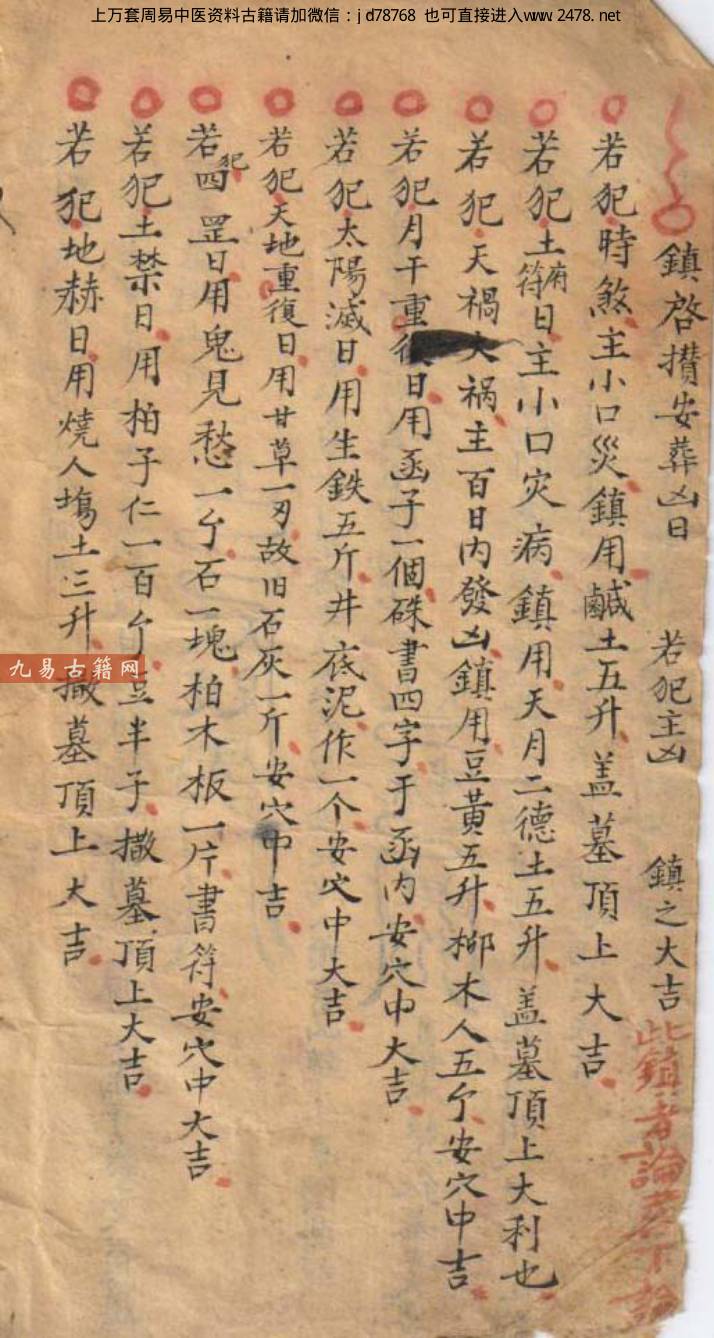 上万套周易中医资料古籍请加微信：jd78768 也可直接进入www.2478.net
鎮啓攅安葬凶日 若犯主凶 鎮之大吉 此鎮者論墓下論
若犯時煞主小口災鎮用鹹土五升盖墓頂上大吉
若犯土府符日主小口灾病鎮用天月二德土五升盖墓頂上大利也
若犯天禍大禍主百日内發凶鎮用豆黃五升柳木人五个安穴中吉
若犯月干重復日用函子一個硃書四字于函内安穴中大吉
若犯太陽滅日用生鉄五斤井底泥作一个安穴中大吉
若犯天地重復日用甘草一刃故旧石灰一斤安穴中吉
若犯四罡日用鬼見愁一个石一塊柏木板一片書符安穴中大吉
若犯土禁日用柏子仁一百个豆半子撒墓頂上大吉
若犯地赫日用燒人塲土三升撒墓頂上大吉
九易古籍网